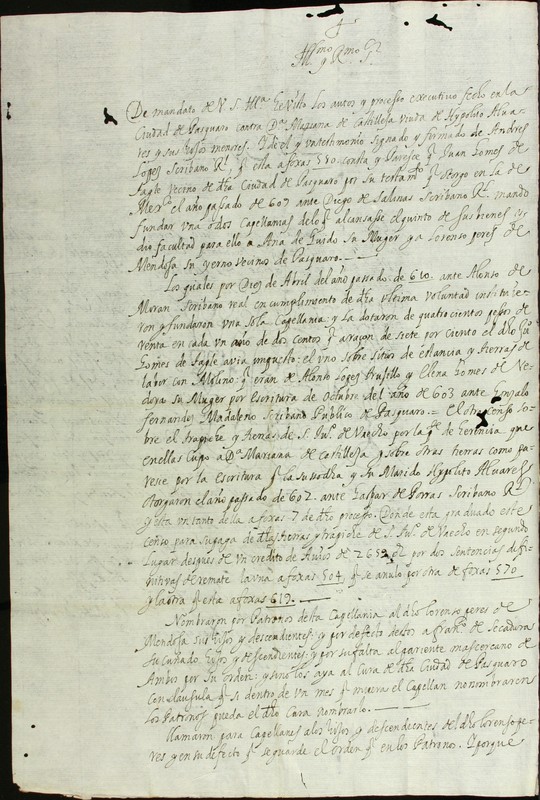 Illmo y Rmo Sr
De mandato de V. S. Illa he visto los autos y processo executivo fecho en la
Ciudad de Pasquaro contra Da Mariana de Castilleja viuda de Hypolito Alua-
res y sus hijos menores. Y de el y un testimonio signado y firmado de Andres
Lopes scribano Rl. q esta a foxas 580 consta y parese q Juan Gomes de
Tagle vecino de dha Ciudad de Pasquaro por su testamto q otorgo en la de
Mexco el año pasado de 607 ante Diego de Salinas scribano Rl. mando
fundar una o dos Capellanias de lo q alcansasse el quinto de sus bienes y
dio facultad para ello a Ana de su Muger y a Lorenso peres de
Mendosa su yerno vecinos de Pasquaro.
Los quales por Dies de Abril del año pasado de 610 ante Alonso de
Moran scribano real en cumplimiento de dha ultima voluntad instituye-
ron y fundaron una sola Capellania: y la dotaron de quatrocientos pesos de
renta en cada un año de dos censos q a rason de siete por ciento el dho Ju
Gomes de Tagle avia impuesto: el uno sobre sitios de estancia y tierras de
labor con Molino: q eran de Alonso Lopes y Elena Gomes de
su Muger por escritura de Octubre del año de 603 ante Gonzalo
fernandes Madaleno scribano Publico de Pasquaro = el otro censo so-
bre el trapiche y tierras de S. Jua. de por la pte de herencia que
en ellas cupo a Da Mariana de Castilleja y sobre otras tierras como pa-
rese por la escritura q la susodha y su Marido Hypolito Aluares
otorgaron el año pasado de 602. ante Gaspar de Porras scribano Rl
y esta un tanto della a foxas 7 de dho processo. Donde esta graduado este
censo para su paga de dhas tierras y trapiche de S. Jua. de en segundo
lugar despues de un credito de de por dos sentencias difi-
nitivas de remate la una a foxas 504, q se anulo por otra de foxas 570
y la otra q esta a foxas 619.
Nombraron por Patrones desta Capellania al dho Lorenso peres de
Mendosa sus hijos y descendientes: y por defecto destos a Franco de Secadura
su cuñado hijos y descendientes: y por su falta al pariente mas cercano de
Ambos por su orden: y sino los aya al Cura de dha Ciudad de Pasquaro
con clausula q si dentro de un mes q muera el Capellan no nombraren
los Patrones pueda el dho Cura nombrarlo.
Llamaron para Capellanes a los hijos y descendientes del dho Lorenso pe-
res y en su defecto q se guarde el orden q en los Patrono. Y porque